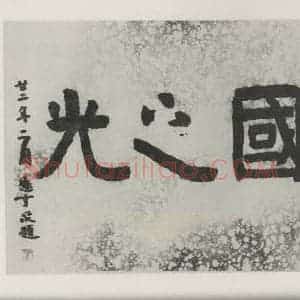 國之光
廿二年二月 題
shufaziliao.com